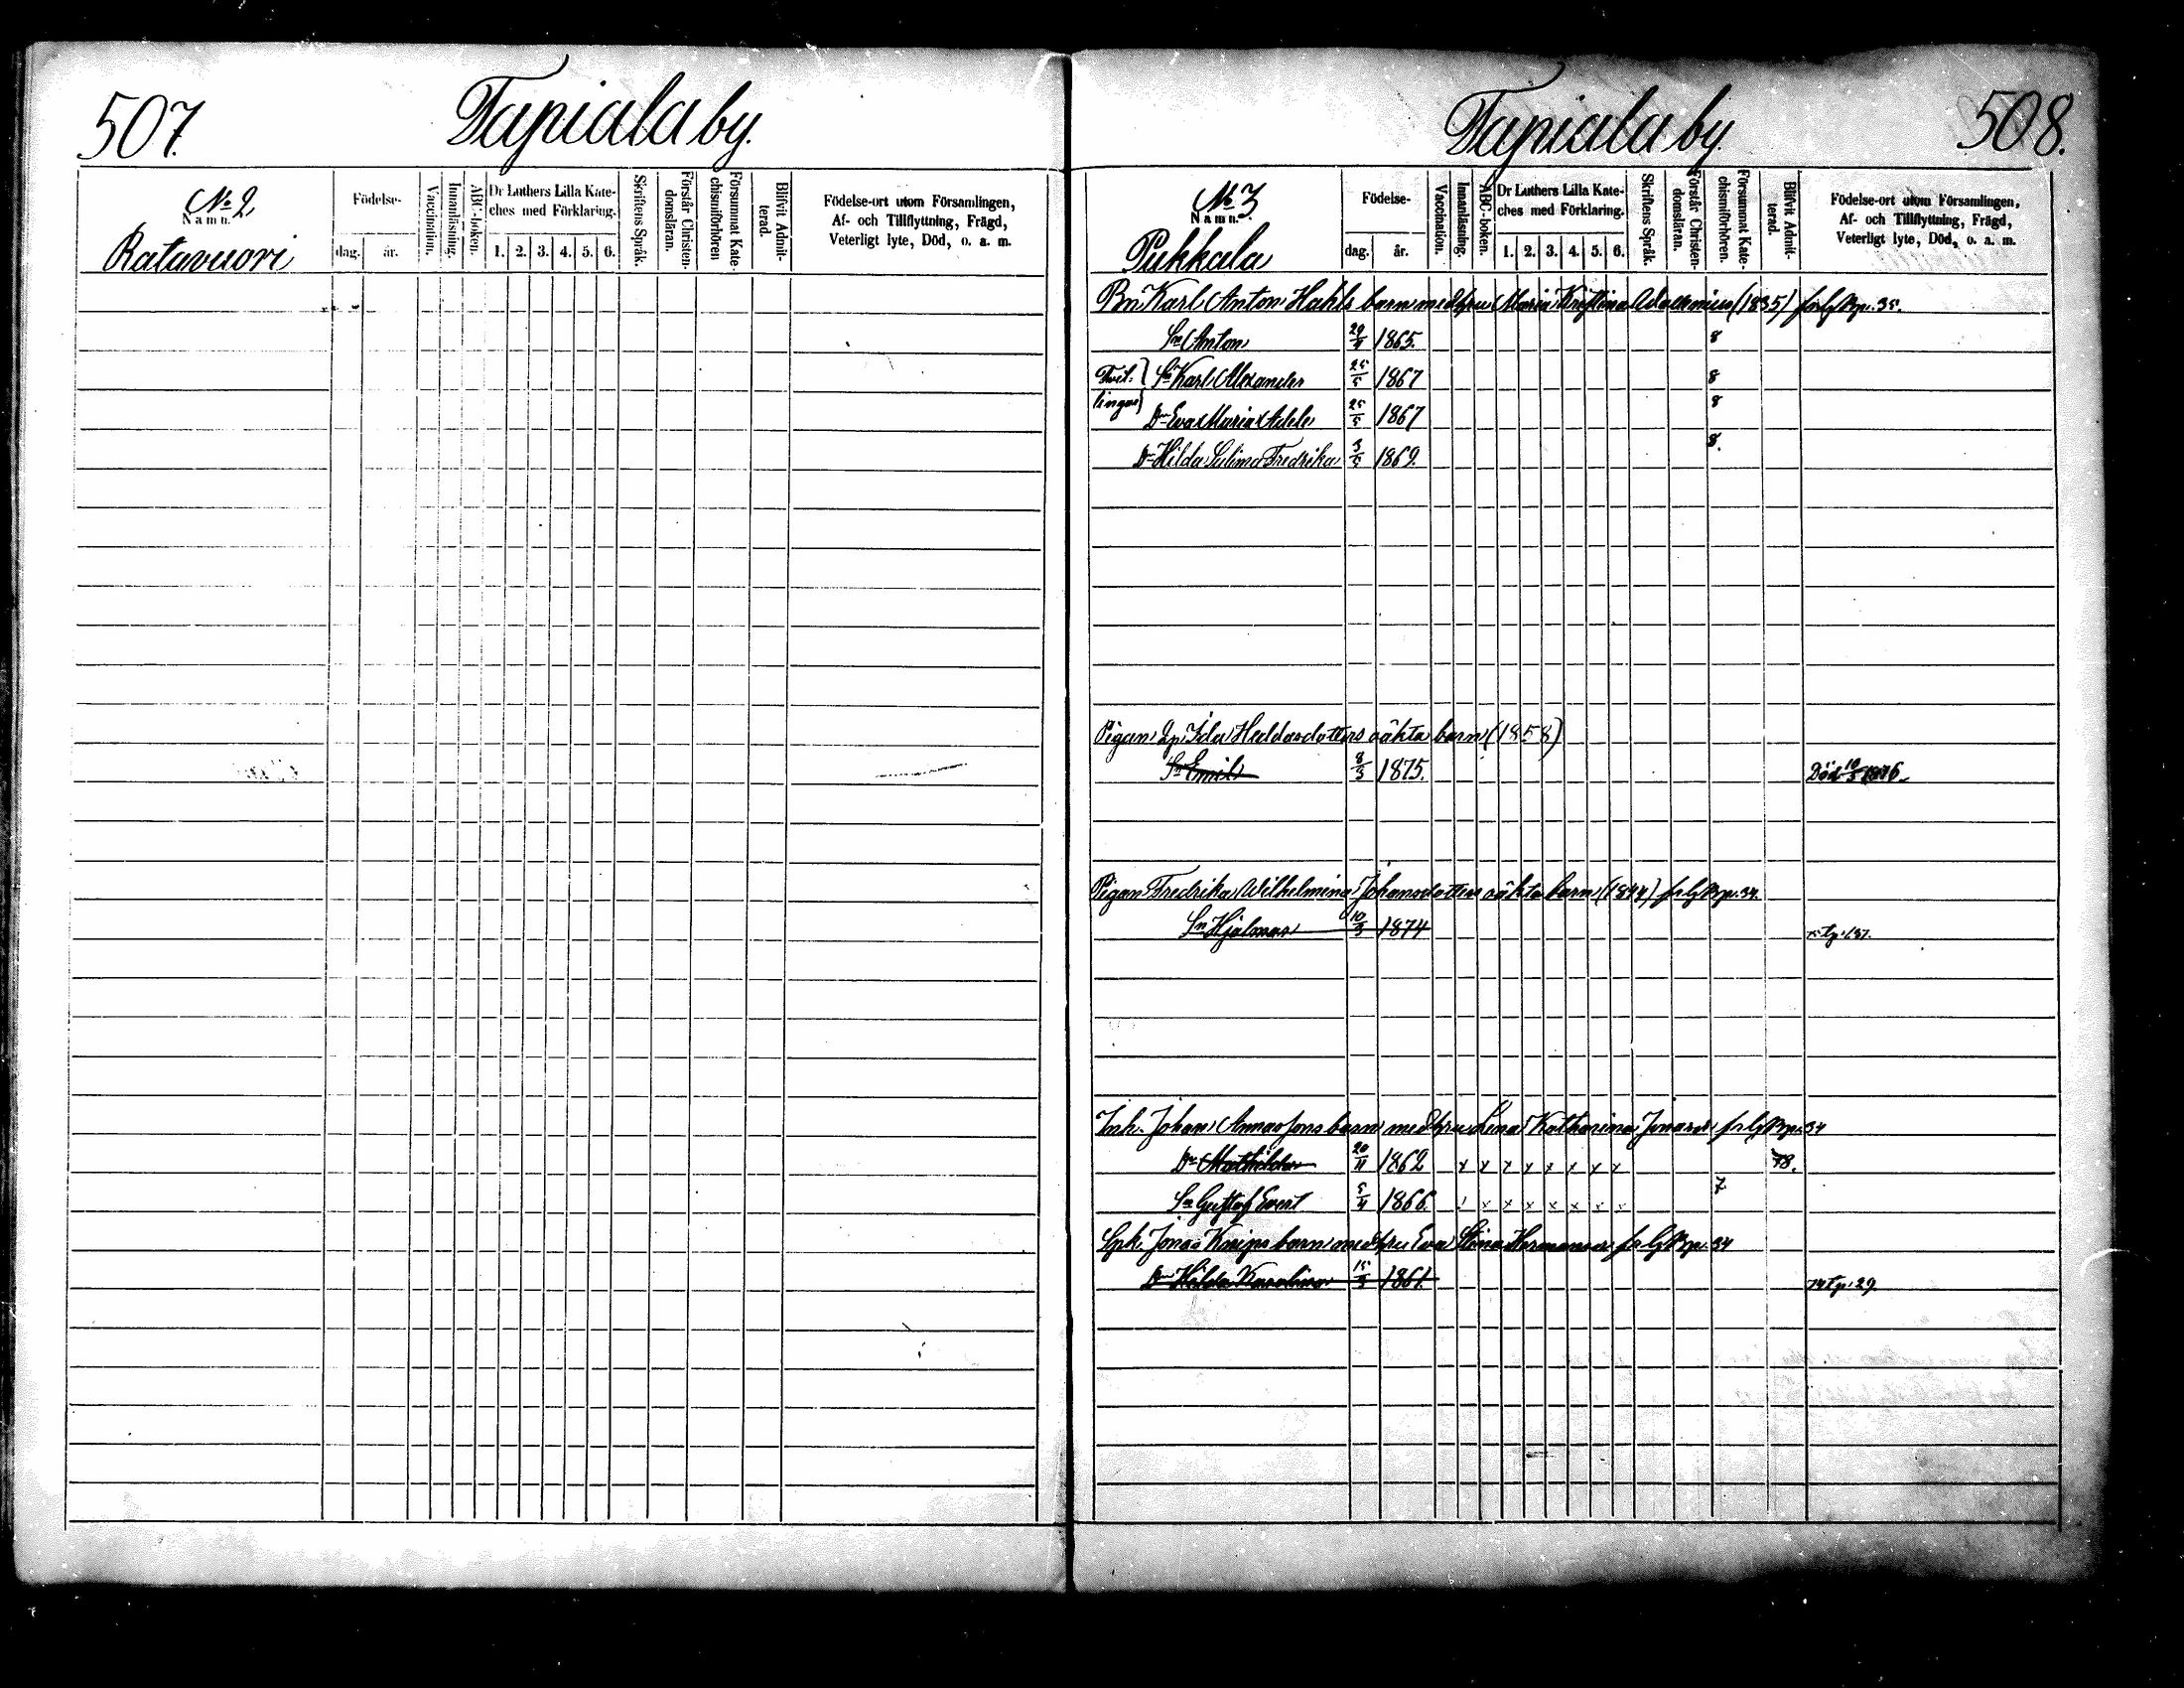 507.
Tapiala by.
No 2
Namn.
Ratavuori
Födelse-
dag.
år.
Vaccination.
Innanläsning.
ABC-boken.
Dr Luthers Lilla Kate-
ches med Förklaring.
1. 2. 3. 4. 5. 6.
Skriftens Språk.
Förstår Christen-
domsläran.
Försummat Kate-
chismiförhören
Blifvit Admit-
terad.
Födelse-ort utom Församlingen,
Af- och Tillflyttning, Frägd,
Veterligt lyte, Död, o. a. m.
Tapiala by.
508.
No 3
Namn.
Pukkala
Födelse-
dag.
år.
Vaccination.
Innanläsning.
ABC-boken.
Dr Luthers Lilla Kate-
ches med Förklaring.
1. 2. 3. 4. 5. 6.
Skriftens Språk.
Förstår Christen-
domsläran.
Försummat Kate-
chismiförhören.
Blifvit Admit-
terad.
Födelse-ort utom Församlingen,
Af- och Tillflyttning, Frägd,
Veterligt lyte, Död, o. a. m.
Bn Karl Anton Hahls barn med hru Maria Kristina (1835) p. 35.
Sn Anton 1865. 8
Tvil- Sn Karl Alexander 25/5 1867 8
lingar Dr Eva Maria Adele 25/5 1867 8
Dr Hilda Selima Fredrika 1869. 8.
Pigan Ida Heddasdotters oäkta barn (1858)
Sn Emil 8/3 1875. Död 1876
Pigan Fredrika Wilhelmina Johansdotters oäkta barn (1844) p. 34.
Sn Hjalmar 10/3 1874
Inh. Johan barn med hru Lena Katharina p. 34
Dr Mathilda 20/11 1862 x x x x x x x x 78.
Sn Gustaf Evert 1866. x x x x x x x 7
Jonas Knips barn med hru Eva Stina p. 34
Dr Hilda Karolina 15/3 1861. p. 29.